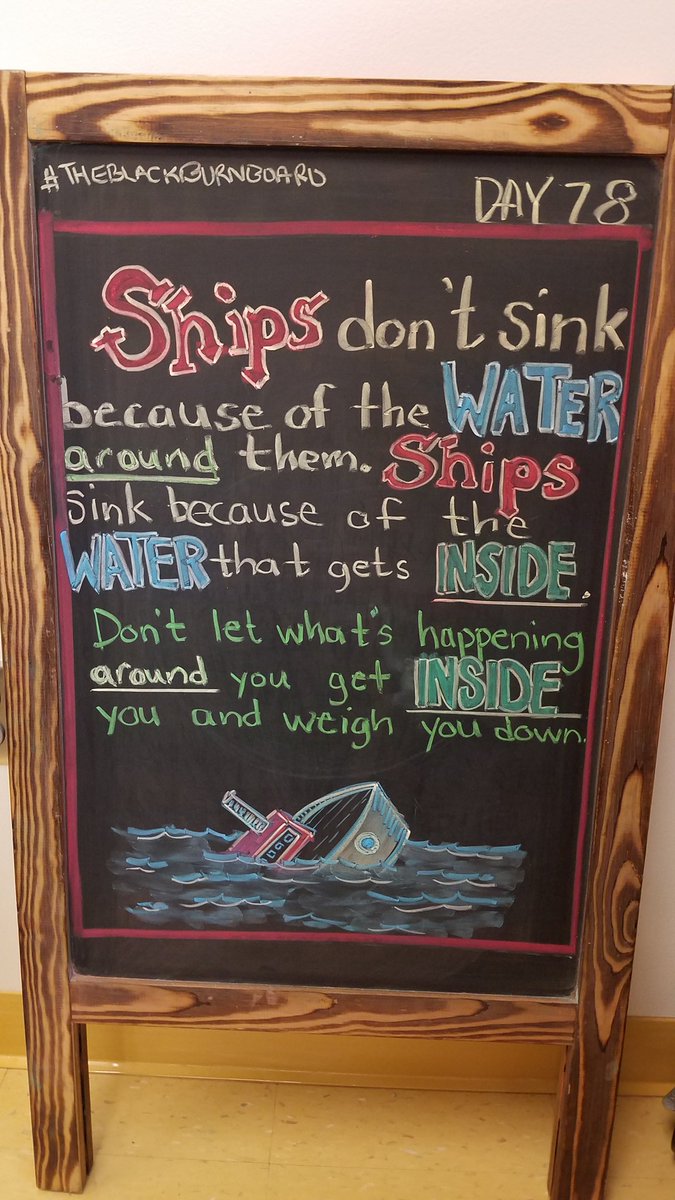 #THEBLACKBURNBOARD
DAY 78
Ships don't sink
because of the WATER
around them. Ships
Sink because of the
WATER that gets INSIDE.
Don't let what's happening
around you get INSIDE
you and weigh you down.